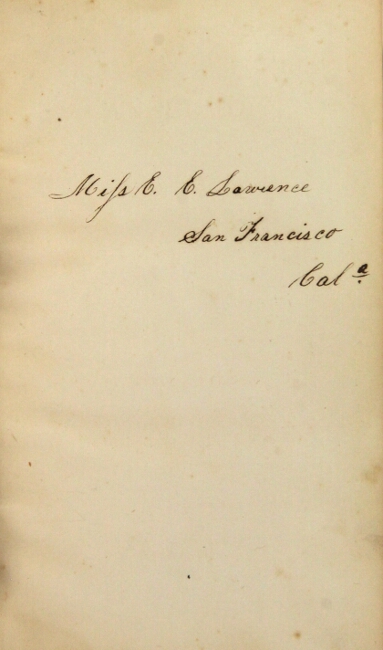 Miſs E. E. Lawrence
San Francisco
Calª.